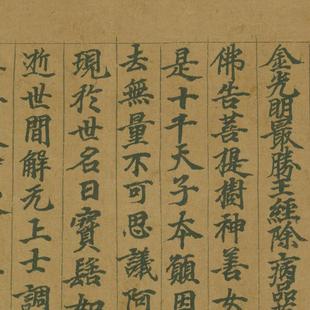 金光明最勝王經除病品
佛告菩提樹神善女
是十千天子本願因
去無量不可思議阿
現於世名曰寶髻如
逝世間解无上士調